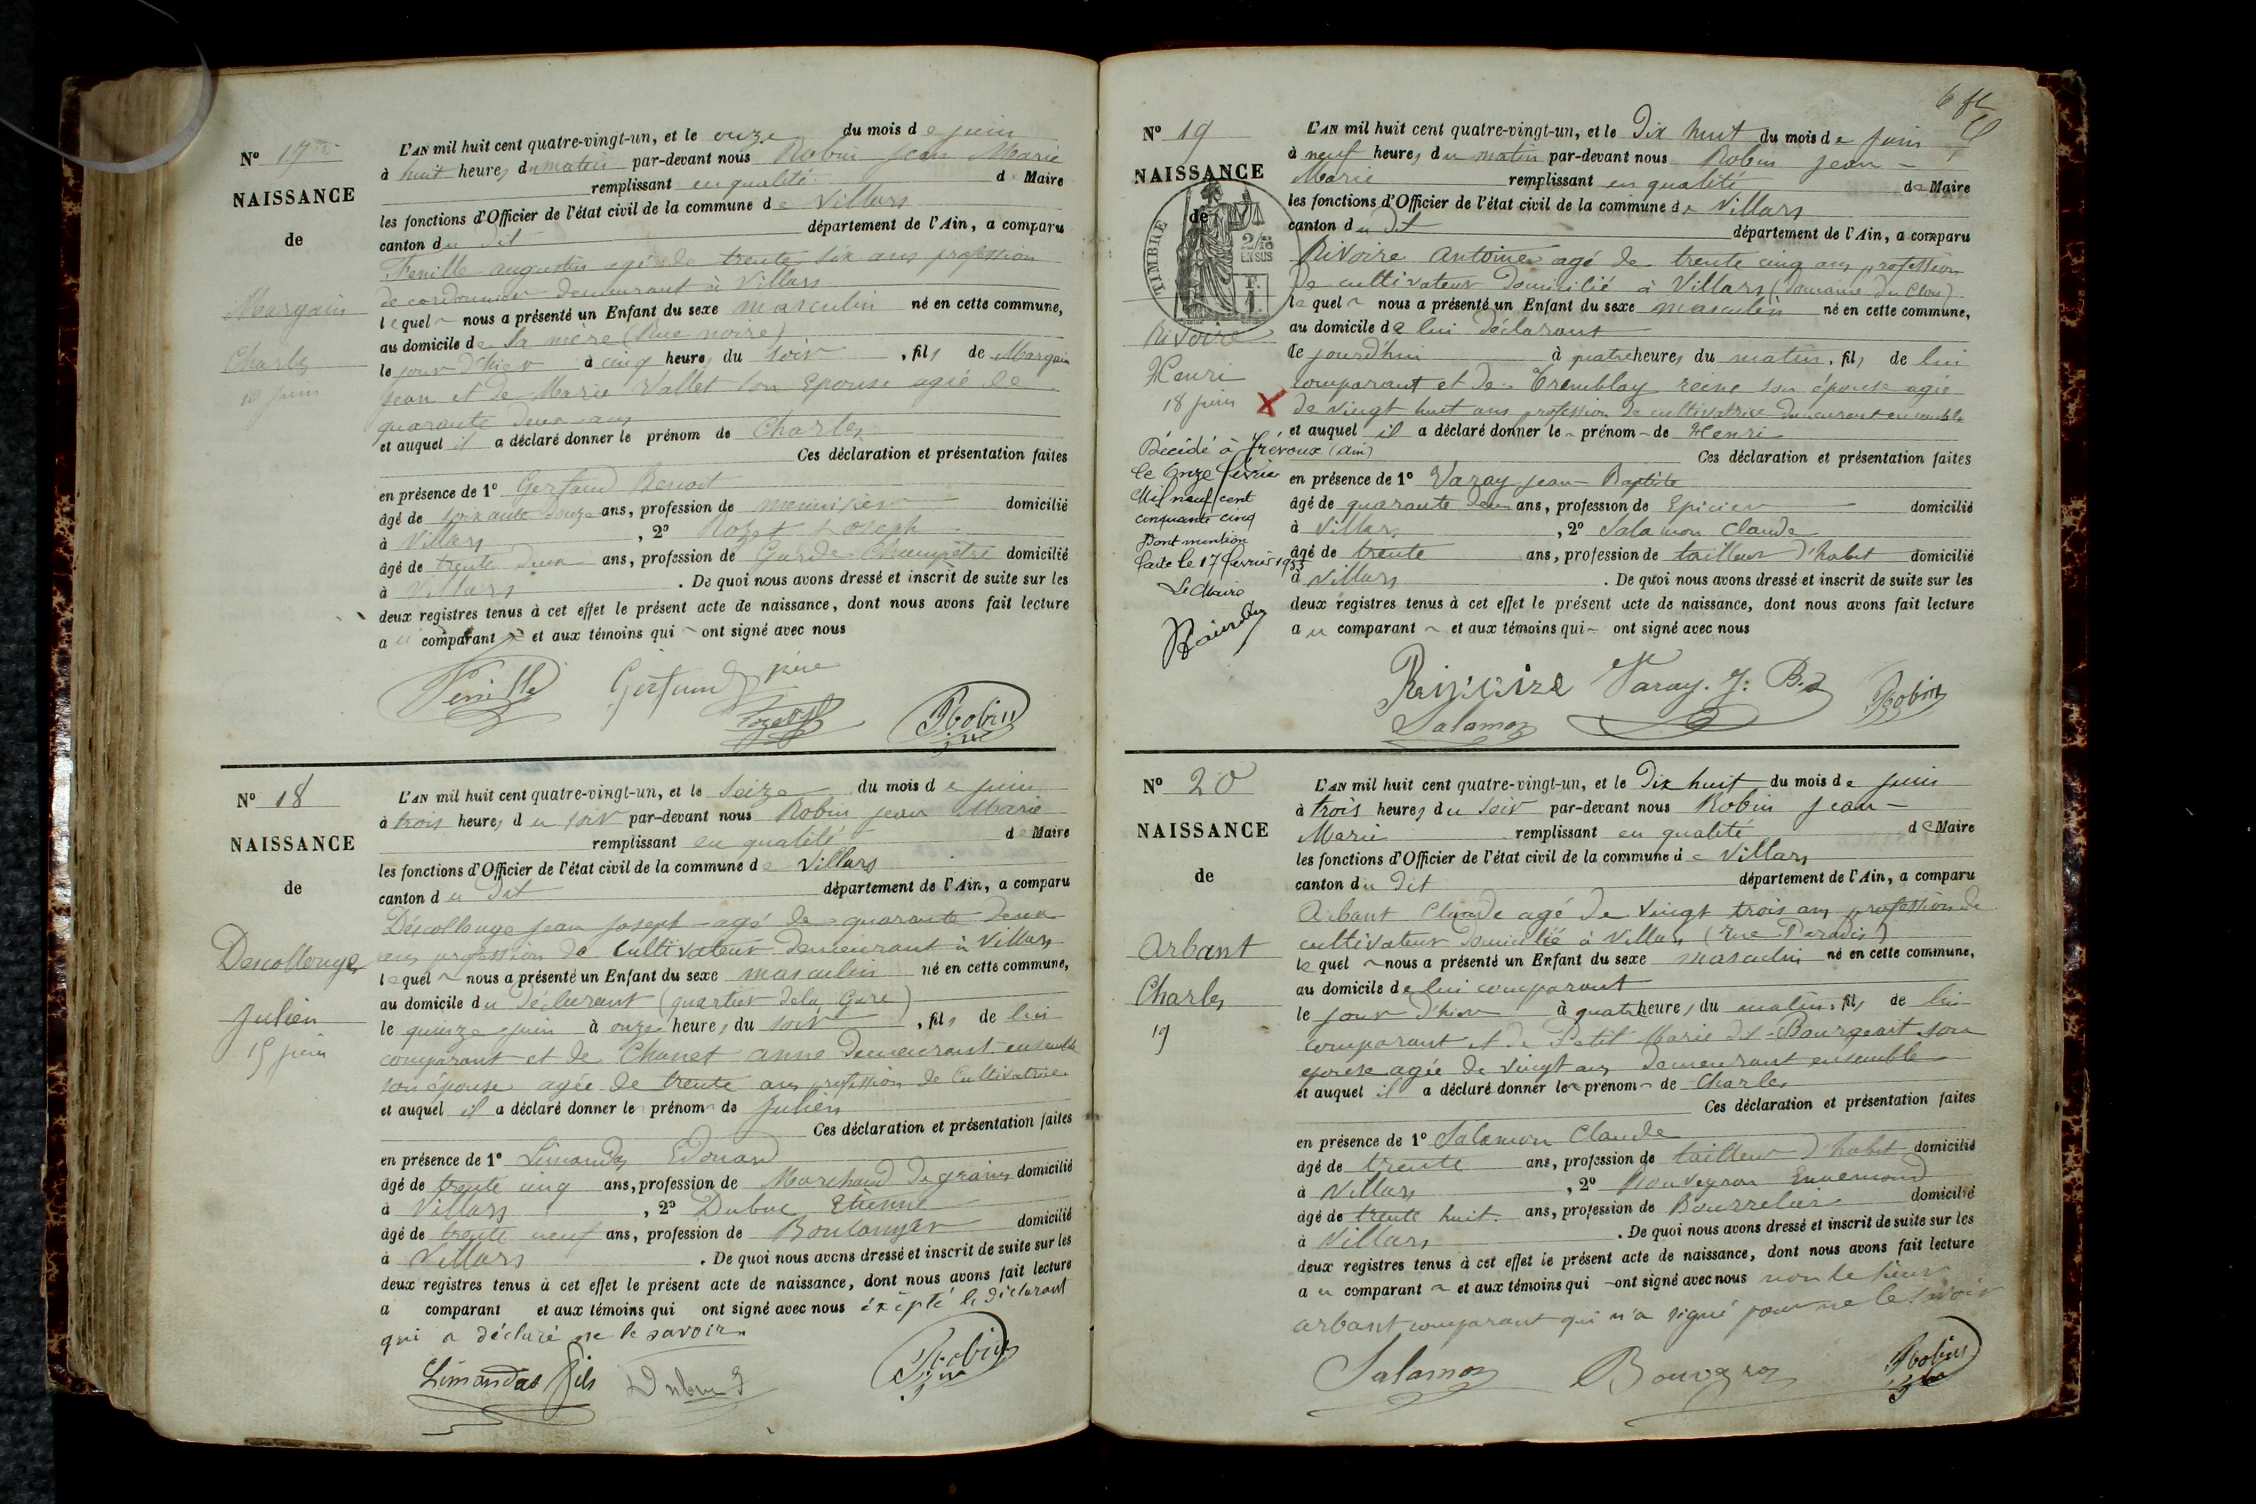 N° 17
NAISSANCE
de
Margain
Charles
10 juin
L'AN mil huit cent quatre-vingt-un, et le onze du mois de juin
à huit heures du matin par-devant nous Robin Jean Marie
remplissant en qualité de Maire
les fonctions d'Officier de l'état civil de la commune de Villars
canton du dit département de l'Ain, a comparu
Fenille augustin agé de trente six ans profession
de cordonnier demeurant à Villars
lequel nous a présenté un Enfant du sexe masculin né en cette commune,
au domicile de Sa mère (Rue noire)
le jour d'hier à cinq heures du soir, fils de Margain
Jean et de Marie Vallet son Epouse agée de
quarante deux ans
et auquel il a déclaré donner le prénom de Charles
Ces déclaration et présentation faites
en présence de 1° Gertaud Benoit
âgé de soixante douze ans, profession de menuisier domicilié
à Villars, 2° Rozet Joseph
âgé de trente deux ans, profession de Garde Champêtre domicilié
à Villars. De quoi nous avons dressé et inscrit de suite sur les
deux registres tenus à cet effet le présent acte de naissance, dont nous avons fait lecture
au comparant et aux témoins qui ont signé avec nous
Fenille Gertaud père
Robin
N° 18
NAISSANCE
de
Descollonges
Julien
15 juin
L'AN mil huit cent quatre-vingt-un, et le Seize du mois de juin
à trois heures du soir par-devant nous Robin Jean Marie
remplissant en qualité de Maire
les fonctions d'Officier de l'état civil de la commune de Villars
canton du dit département de l'Ain, a comparu
Déscollonge Jean Joseph agé de quarante deux
ans profession de Cultivateur demeurant à Villars
lequel nous a présenté un Enfant du sexe masculin né en cette commune,
au domicile du déclarant (quartier de la Gare)
le quinze juin à onze heures du soir, fils de lui
comparant et de Chanet anne demeurant ensemble
son épouse agée de trente ans profession de Cultivatrice
et auquel il a déclaré donner le prénom de Julien
Ces déclaration et présentation faites
en présence de 1° Limandas Edouard
âgé de trente cinq ans, profession de Marchand de grains domicilié
à Villars, 2° Dubuc Etienne
âgé de trente neuf ans, profession de Boulanger domicilié
à Villars. De quoi nous avons dressé et inscrit de suite sur les
deux registres tenus à cet effet le présent acte de naissance, dont nous avons fait lecture
a comparant et aux témoins qui ont signé avec nous éxépté le déclarant
qui a déclaré ne le savoir.
Limandas fils Dubuc
Robin
6 fl
N° 19
NAISSANCE
de
TIMBRE
2/10
EN SUS
Rivoire
Henri
18 juin
X
Décédé à Trévoux (Ain)
le Onze février
Mil neuf cent
cinquante cinq
Dont mention
faite le 17 février 1955
Le Maire
L'AN mil huit cent quatre-vingt-un, et le Dix huit du mois de juin
à neuf heures du matin par-devant nous Robin Jean
Marie remplissant en qualité de Maire
les fonctions d'Officier de l'état civil de la commune de Villars
canton du dit département de l'Ain, a comparu
Rivoire Antoine agé de trente cinq ans profession
de cultivateur Domicilié à Villars (domaine du Clou)
lequel nous a présenté un Enfant du sexe masculin né en cette commune,
au domicile de lui déclarant
le jourd'hui à quatre heures du matin, fils de lui
comparant et de Tremblay reine son épouse agée
de vingt huit ans profession de cultivatrice demeurant ensemble
et auquel il a déclaré donner le prénom de Henri
Ces déclaration et présentation faites
en présence de 1° Varay Jean Baptiste
âgé de quarante deux ans, profession de Epicier domicilié
à Villars, 2° Salamon Claude
âgé de trente ans, profession de tailleur d'habit domicilié
à Villars. De quoi nous avons dressé et inscrit de suite sur les
deux registres tenus à cet effet le présent acte de naissance, dont nous avons fait lecture
au comparant et aux témoins qui ont signé avec nous
Rivoire Varay. J. B. Robin
Salamon
N° 20
NAISSANCE
de
Arbant
Charles
19
L'AN mil huit cent quatre-vingt-un, et le Dix huit du mois de juin
à trois heures du soir par-devant nous Robin Jean
Marie remplissant en qualité de Maire
les fonctions d'Officier de l'état civil de la commune de Villars
canton du dit département de l'Ain, a comparu
Arbant Claude agé de vingt trois ans profession de
cultivateur domicilié à Villars (rue Paradis)
lequel nous a présenté un Enfant du sexe masculin né en cette commune,
au domicile de lui comparant
le jour d'hier à quatre heures du matin, fils de lui
comparant et de Petit Marie dt Bourgeait son
épouse agée de vingt ans demeurant ensemble
et auquel il a déclaré donner le prénom de Charles
Ces déclaration et présentation faites
en présence de 1° Salamon Claude
âgé de trente ans, profession de tailleur d'habit domicilié
à Villars, 2° Bouveyron Ennemond
âgé de trente huit ans, profession de Bourrelier domicilié
à Villars. De quoi nous avons dressé et inscrit de suite sur les
deux registres tenus à cet effet le présent acte de naissance, dont nous avons fait lecture
au comparant et aux témoins qui ont signé avec nous non le sieur
arbant comparant qui n'a signé pour ne le savoir
Salamon Bouveyron Robin